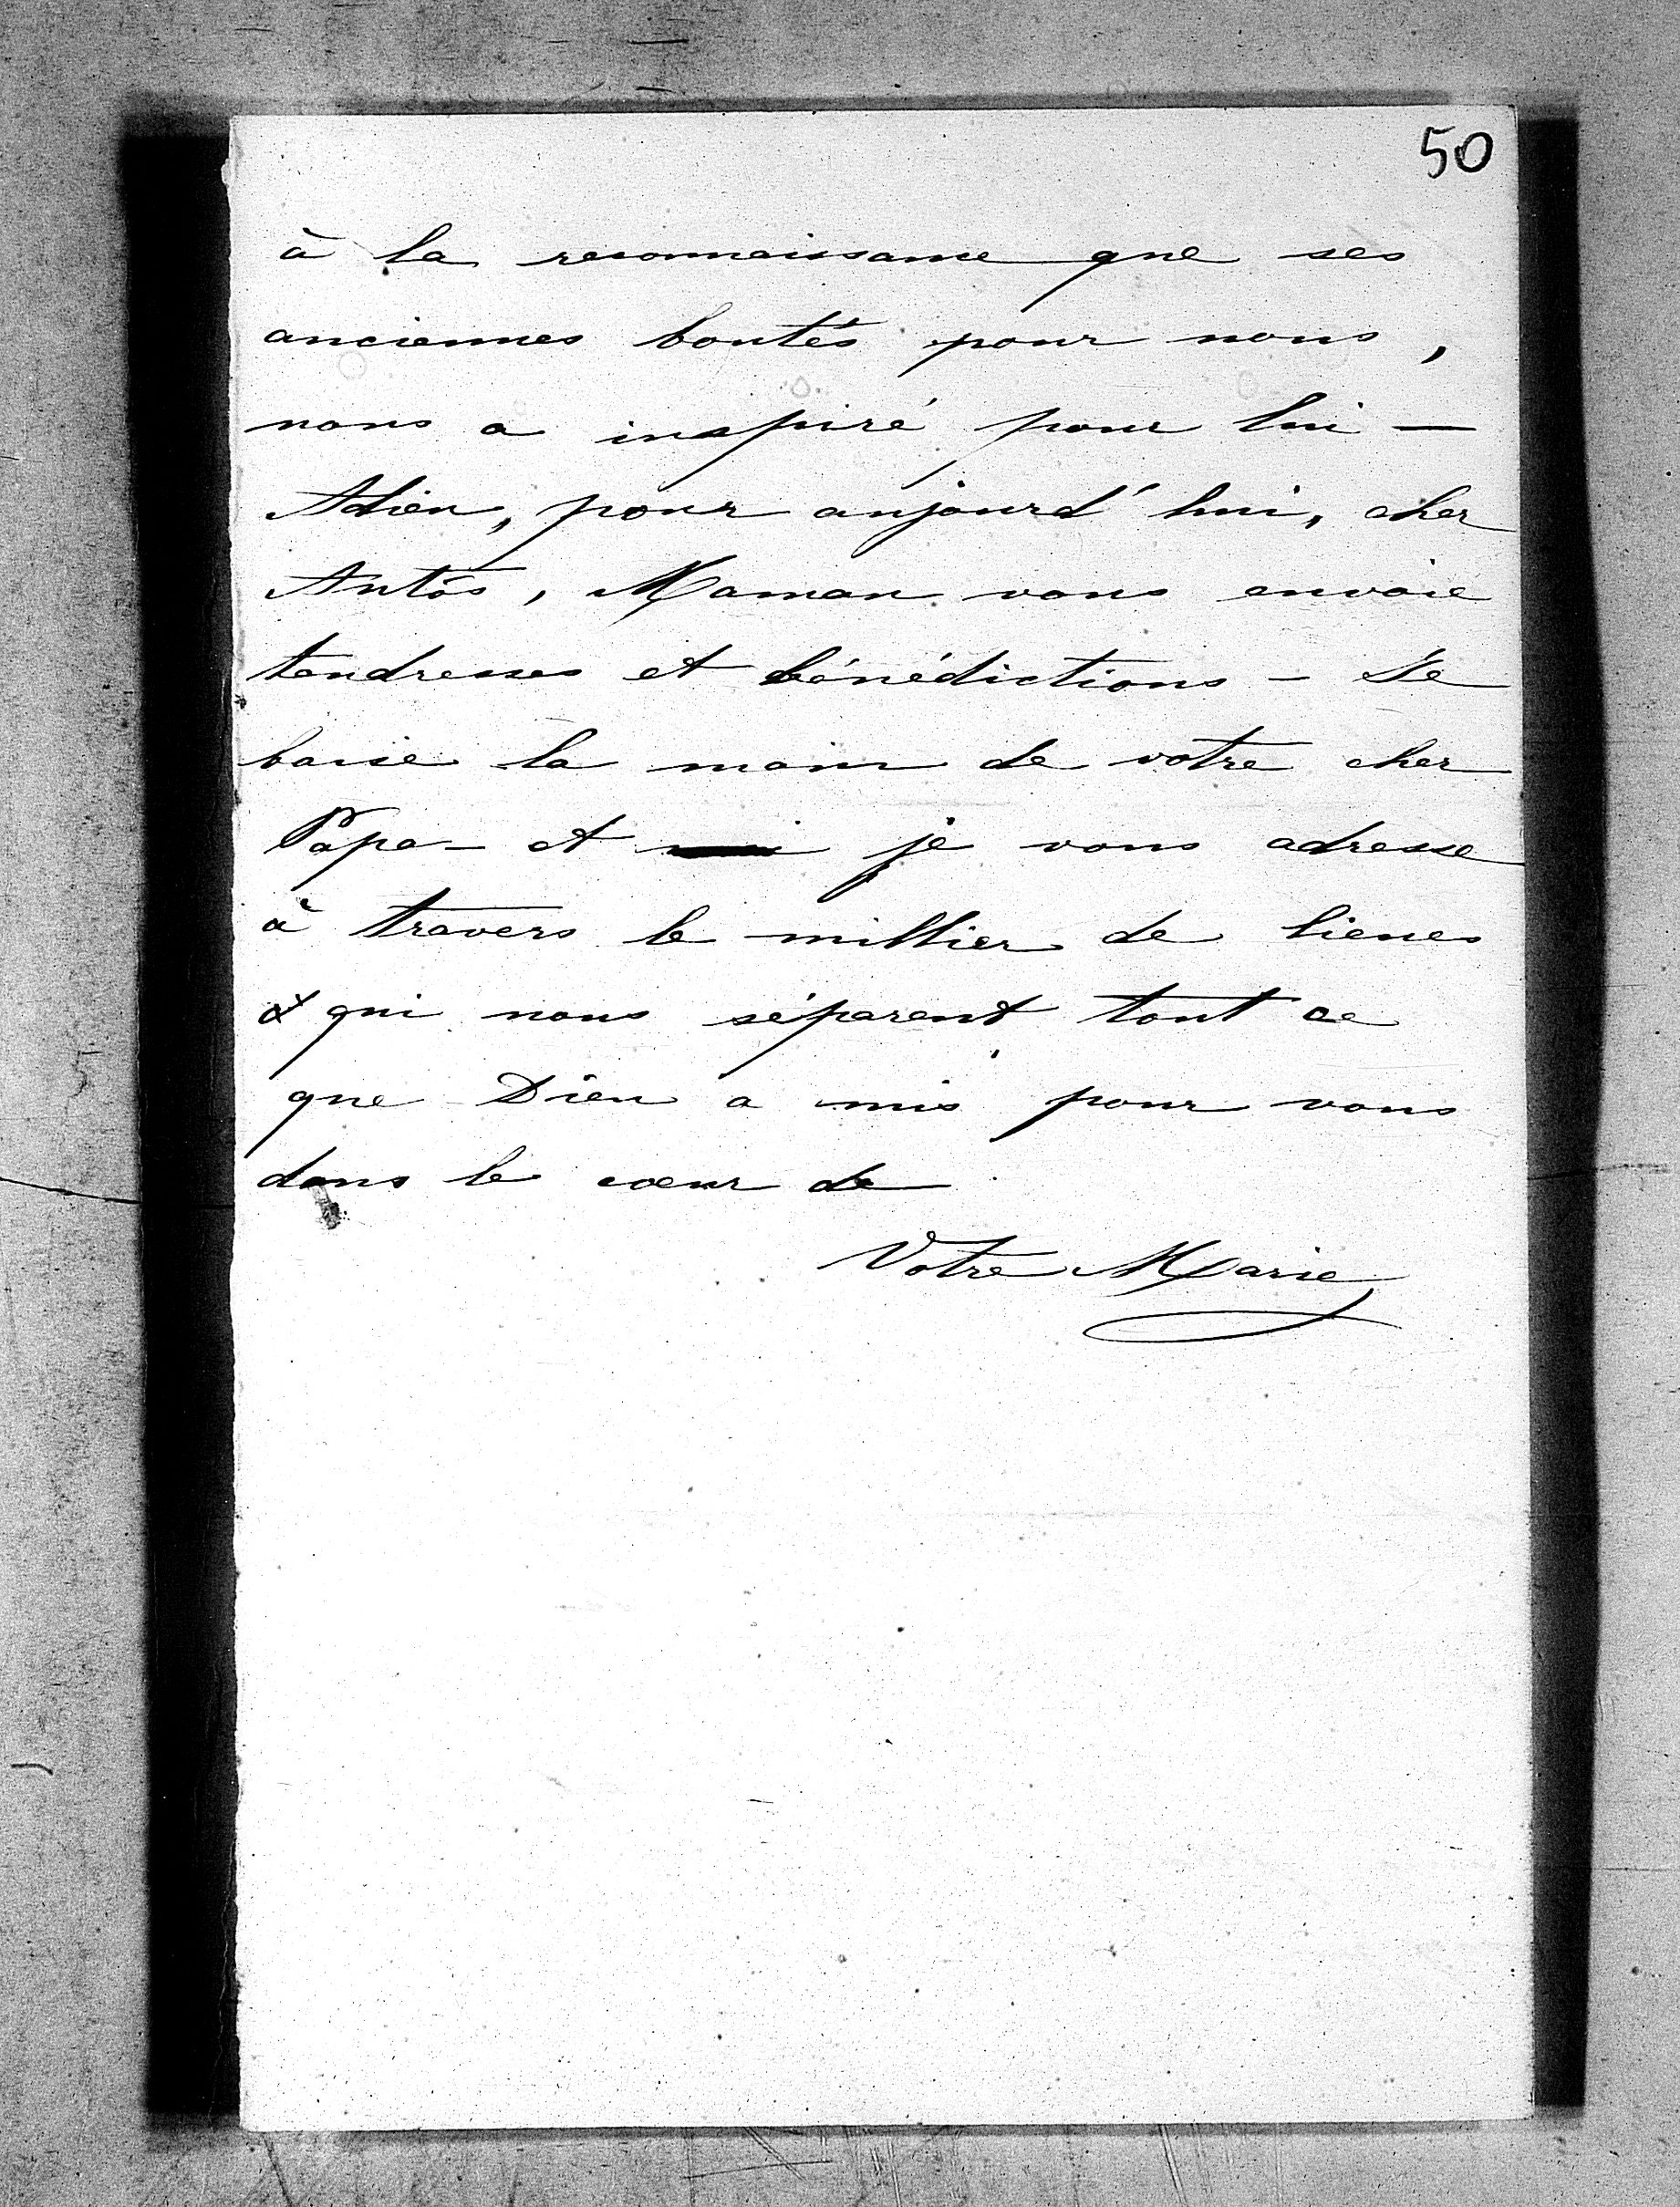 50
à la reconnaissance que ses
anciennes bontés pour nous,
nous a inspiré pour lui —
Adieu, pour aujourd'hui, cher
Antós, Maman vous envoie
tendresses et bénédictions — Je
baise la main de votre cher
Papa — et je vous adresse
à travers le millier de lieues
qui nous séparent tout ce
que Dieu a mis pour vous
dans le cœur de
Votre Marie